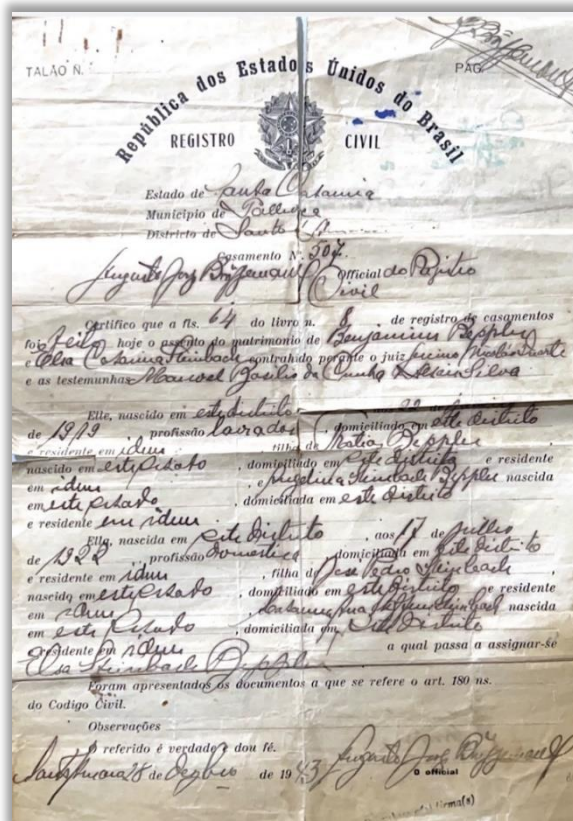 TALÃO N.
PÁG
República dos Estados Unidos do Brasil
REGISTRO CIVIL
Estado de Santa Catarina
Municipio de Palhoça
Districto de Santo
Casamento N. 307
Augusto Jorge Brüggemann Official do Registro
Civil
Certifico que a fls. 64 do livro n. 8 de registro de casamentos
foi feito hoje o assento do matrimonio de Benjamim Deppler
e Elsa Catarina Steinbach contrahido perante o juiz
e as testemunhas Manoel Basilio da Cunha Silva
Elle, nascido em este distrito
de 1919 profissão lavrador, domiciliado em este distrito
e residente em idem, filho de Matia Deppler
nascido em este estado, domiciliado em este distrito e residente
em idem, e Steinbach Deppler nascida
em este estado domiciliada em este distrito
e residente em idem
Ella, nascida em este distrito, aos 17 de julho
de 1922, profissão domestica, domiciliada em este distrito
e residente em idem, filha de José Pedro Steinbach,
nascido em este estado, domiciliado em este distrito e residente
em idem, Steinbach nascida
em este estado, domiciliada em este distrito
e residente em idem a qual passa a assignar-se
Elsa Steinbach Deppler
Foram apresentados os documentos a que se refere o art. 180 ns.
do Codigo Civil.
Observações
O referido é verdade e dou fé.
28 de de 1943 Augusto Jorge Brüggemann
O official
firma(s)